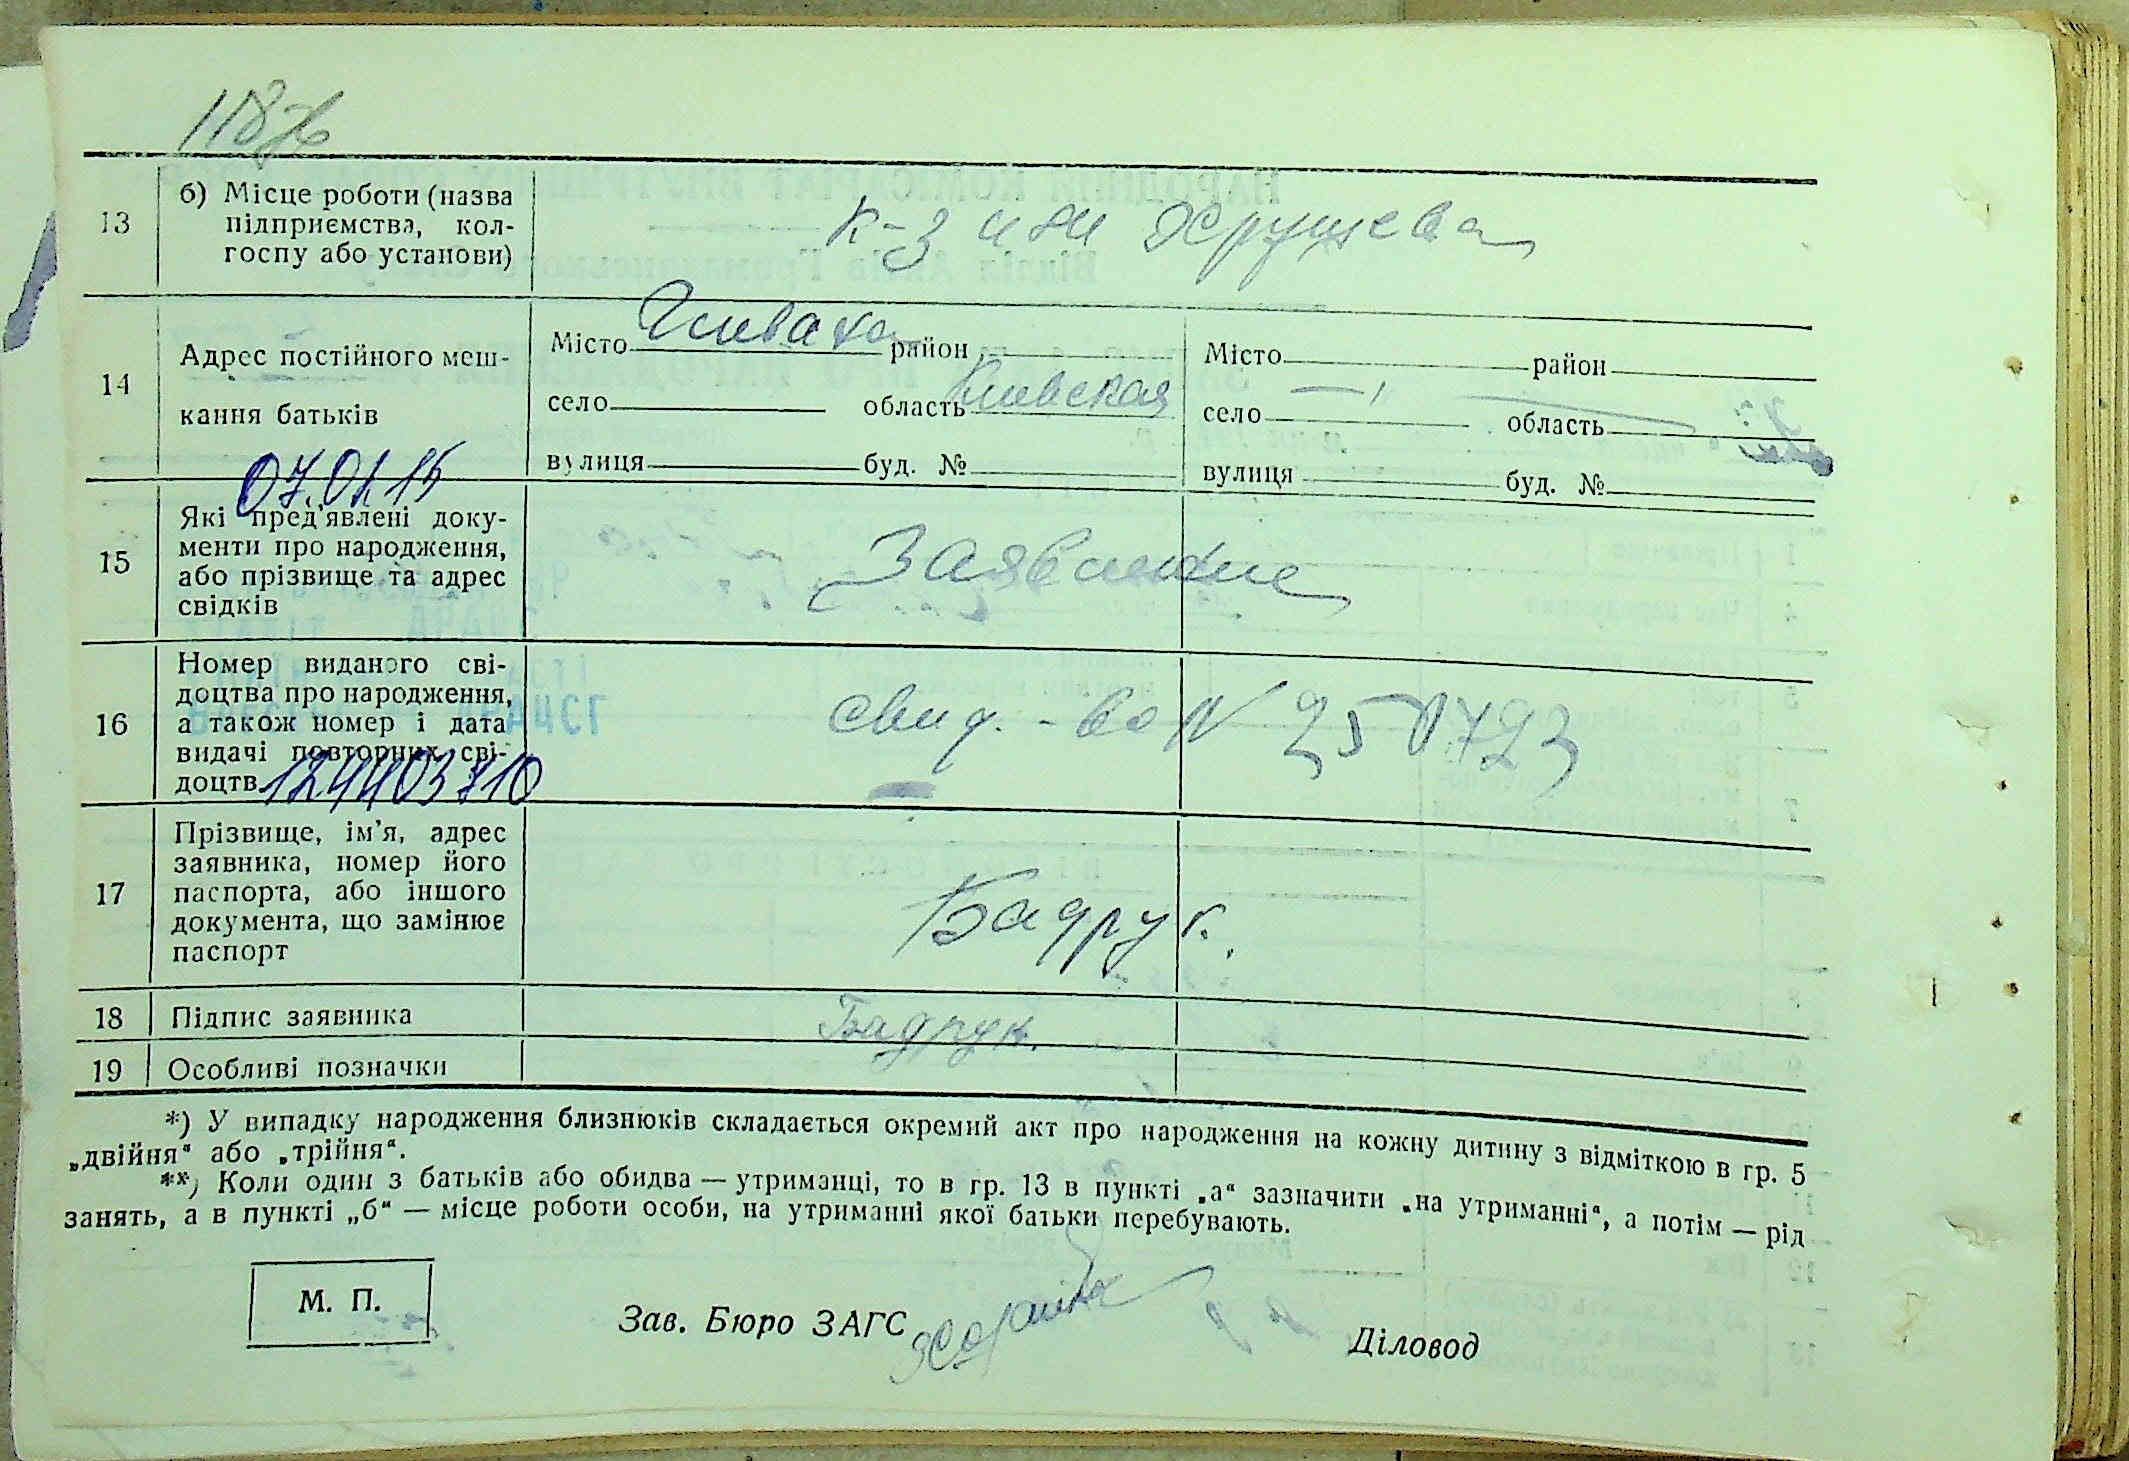 118
13
б) Місце роботи (назва
підприємства, кол-
госпу або установи)
к-з им Хрущева
14
Адрес постійного меш-
кання батьків
Місто район
село область Киевская
вулиця буд. №
Місто район
село — область
вулиця буд. №
07.01.15
15
Які пред'явлені доку-
менти про народження,
або прізвище та адрес
свідків
Заявление
16
Номер виданого сві-
доцтва про народження,
а також номер і дата
видачі повторних сві-
доцтв
свид.-во N 250793
17
Прізвище, ім'я, адрес
заявника, номер його
паспорта, або іншого
документа, що замінює
паспорт
Бадрук.
18
Підпис заявника
Бадрук.
19
Особливі позначки
*) У випадку народження близнюків складається окремий акт про народження на кожну дитину з відміткою в гр. 5
„двійня“ або „трійня“.
**) Коли один з батьків або обидва — утриманці, то в гр. 13 в пункті „а“ зазначити „на утриманні“, а потім — рід
занять, а в пункті „б“ — місце роботи особи, на утриманні якої батьки перебувають.
М. П.
Зав. Бюро ЗАГС
Діловод